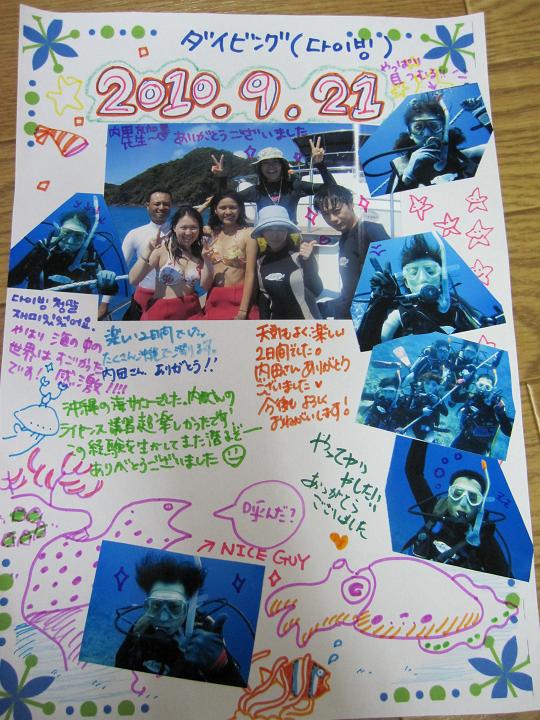 ダイビング(다이빙)
2010.9.21
やっぱり
見つめる!!
ありがとうございました
다이빙 정말
재미있었어요.
やはり 海の中の
世界は すごかった
です! 感激!!!!
楽しい2日間でした。
たくさん沖縄で潜ります。
内田さん、ありがとう!!
天気もよく楽しい
2日間でした。
内田さんありがとう
ございました♥
今後も よろしく
おねがいします!
沖縄の海サイコーでした。
ライセンス講習超楽しかったです!
の経験を生かしてまた潜るぞー
ありがとうございました
ありがとう
ございました
呼んだ?
→ NICE GUY